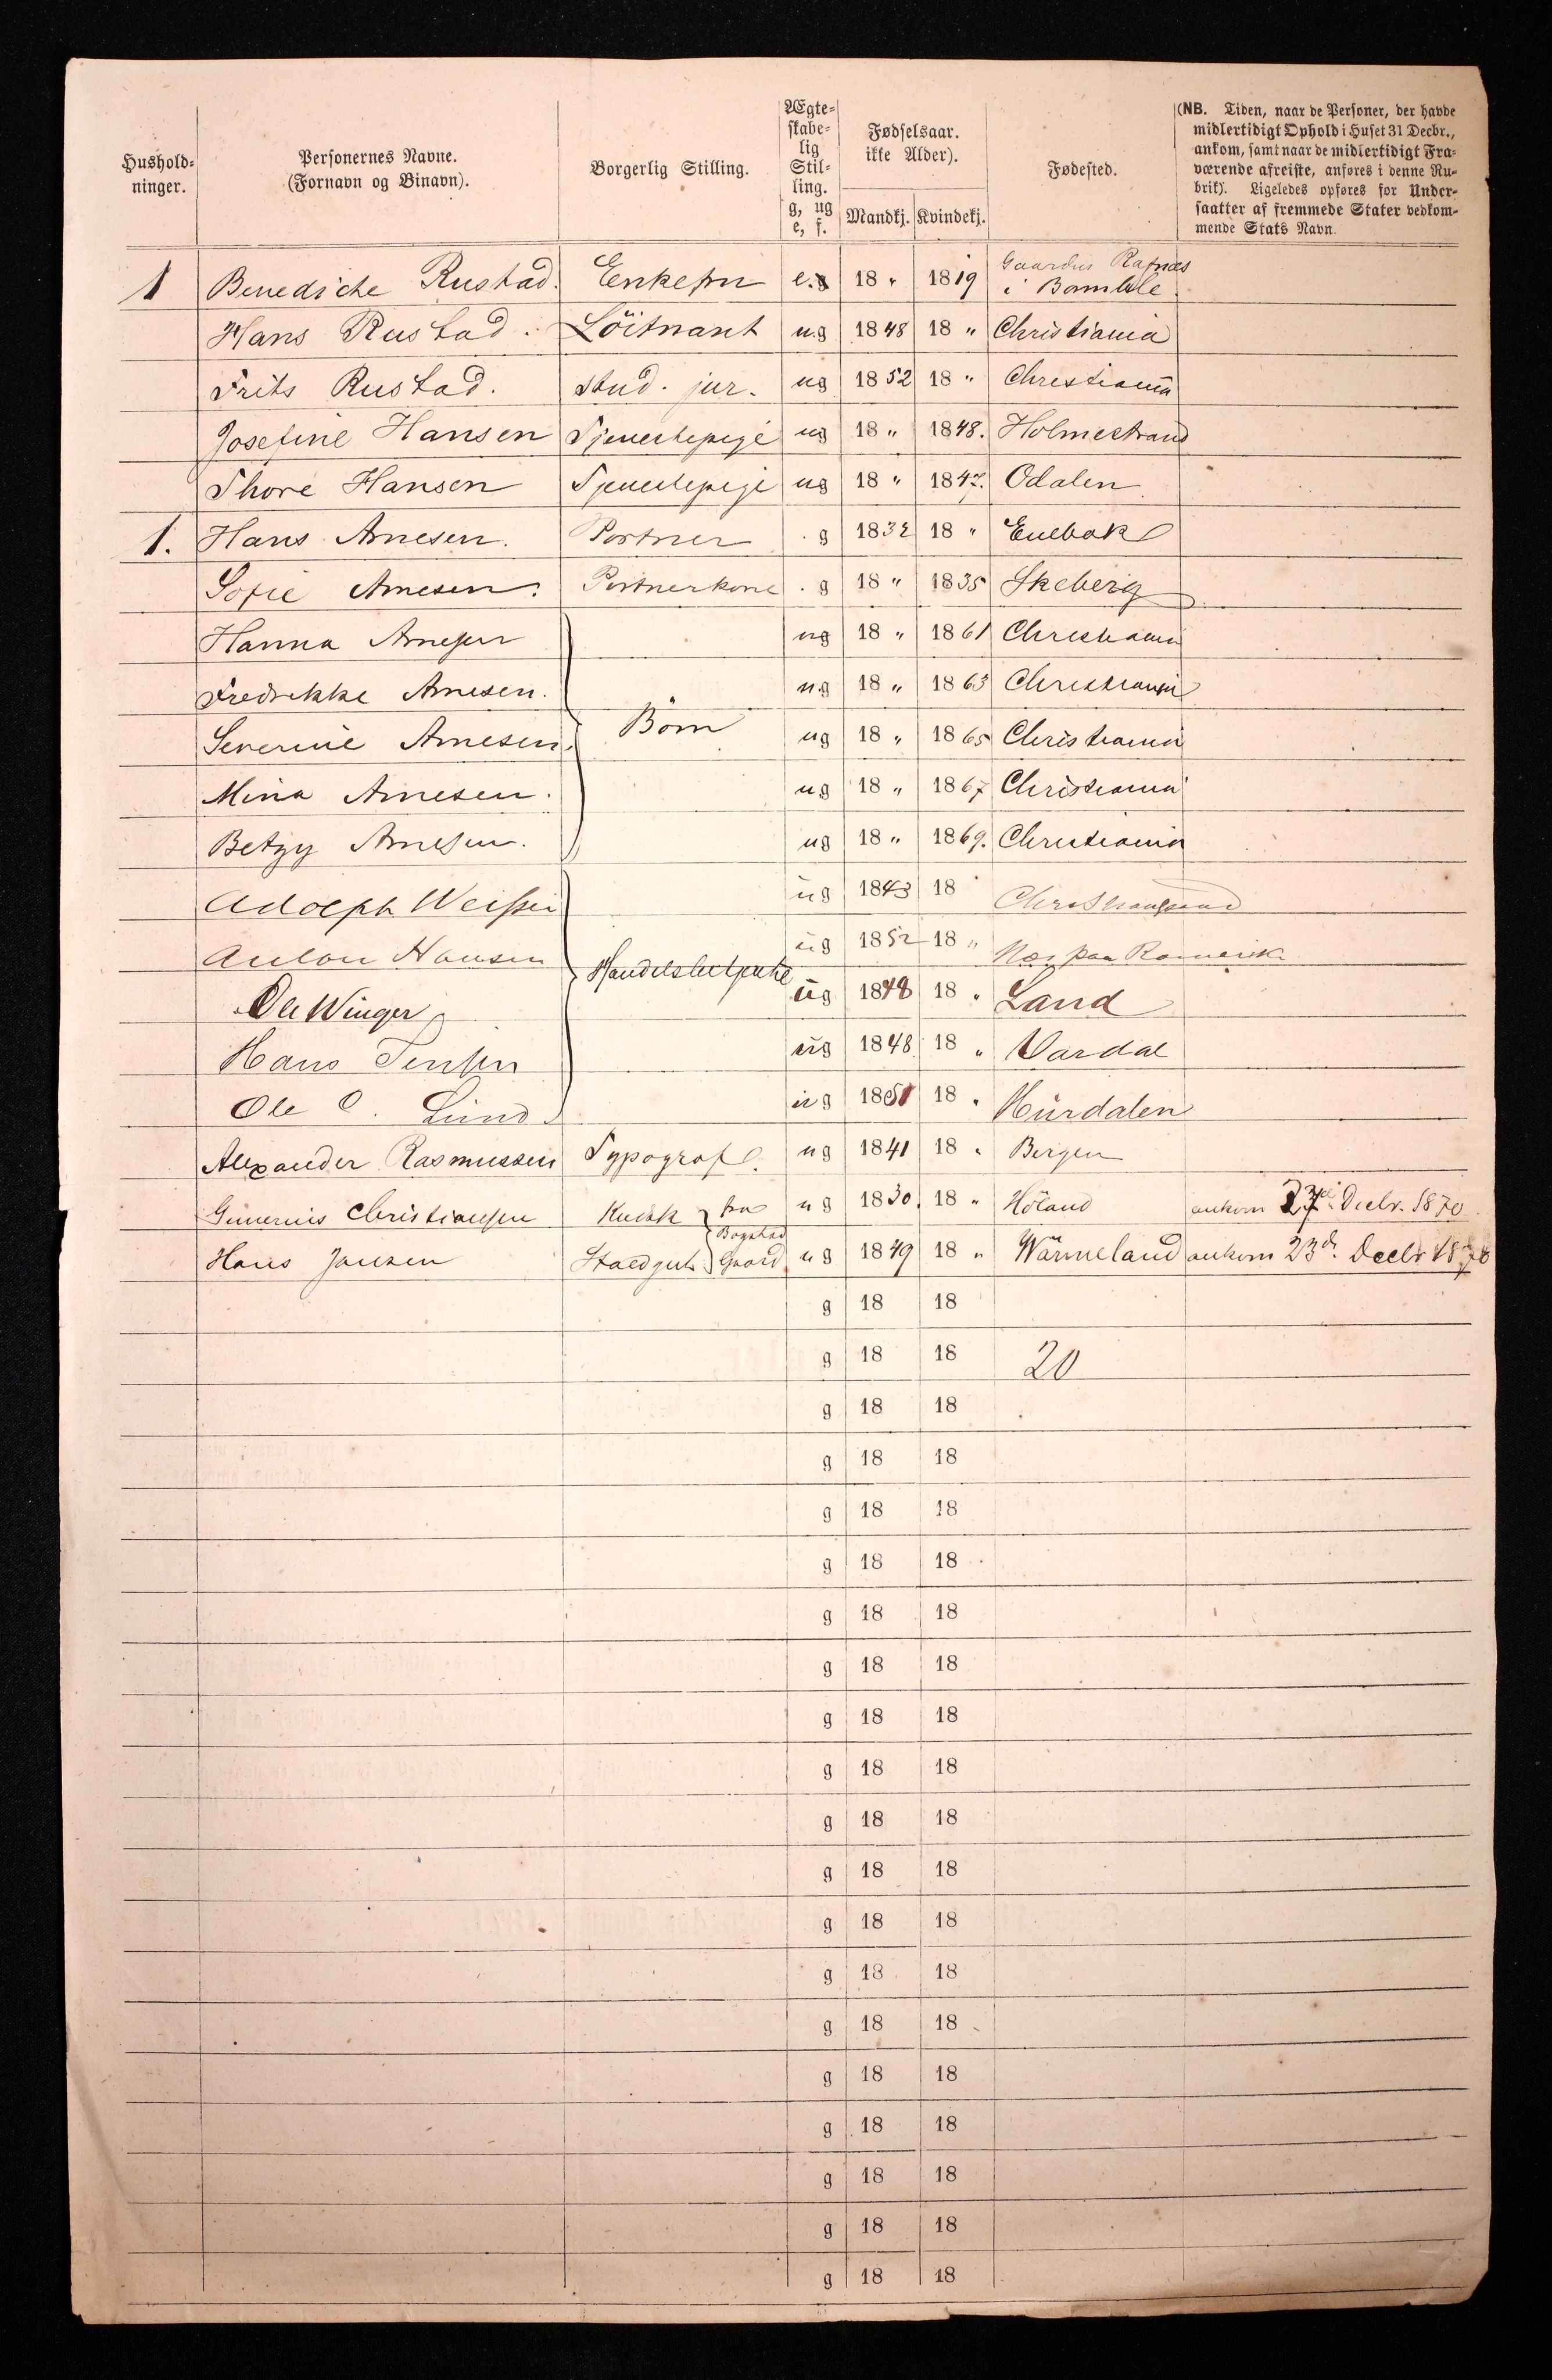 Hushold-
ninger.
Personernes Navne.
(Fornavn og Binavn).
Borgerlig Stilling.
Ægte-
skabe-
lig
Stil-
ling.
g, ug
e, f.
Fødselsaar.
ikke Alder).
Mandkj. Kvindekj.
Fødested.
(NB. Tiden, naar de Personer, der havde
midlertidigt Ophold i Huset 31 Decbr.,
ankom, samt naar de midlertidigt Fra-
værende afreiste, anføres i denne Ru-
brik). Ligeledes opføres for Under-
saatter af fremmede Stater vedkom-
mende Stats Navn.
1 Benedicte Rustad. Enkefru e.g 18 " 1819 Gaarden Rafnæs
i Bamble.
Hans Rustad. Löitnant ug 1848 18 " Christiania
Frits Rustad. stud. jur. ug 1852 18 " Christiania
Josefine Hansen Tjenestepige ug 18 " 1848. Holmestrand
Thore Hansen Tjenestepige ug 18 " 1847. Odalen
1. Hans Arnesen. Portner g 1832 18 " Enebak
Sofie Arnesen. Portnerkone g 18 " 1835 Skeberg
Hanna Arnesen ug 18 " 1861 Christiania
Fredrikke Arnesen. ug 18 " 1863 Christiania
Severine Arnesen. Börn ug 18 " 1865 Christiania
Mina Arnesen. ug 18 " 1867 Christiania
Betzy Arnesen. ug 18 " 1869. Christiania
Adolph ug 1843 18 Christiansand
Anton Hansen ug 1852 18 " Næs paa Romerik
Handelsbetjente
Ole Winger ug 1848 18 " Land
Hans Jensen ug 1848 18 " Vardal
Ole O. Lund ug 1851 18 " Hurdalen
Alexander Rasmussen Typograf. ug 1841 18 " Bergen
Christiansen Kudsk fra ug 1830. 18 " Höland ankom 27de Decbr. 1870
Bogstad
Hans Jansen Staldgut Gaard ug 1849 18 " Wärmeland ankom 23de Decbr 1870
g 18 18
g 18 18 20
g 18 18
g 18 18
g 18 18
g 18 18
g 18 18
g 18 18
g 18 18
g 18 18
g 18 18
g 18 18
g 18 18
g 18 18
g 18 18
g 18 18
g 18 18
g 18 18
g 18 18
g 18 18